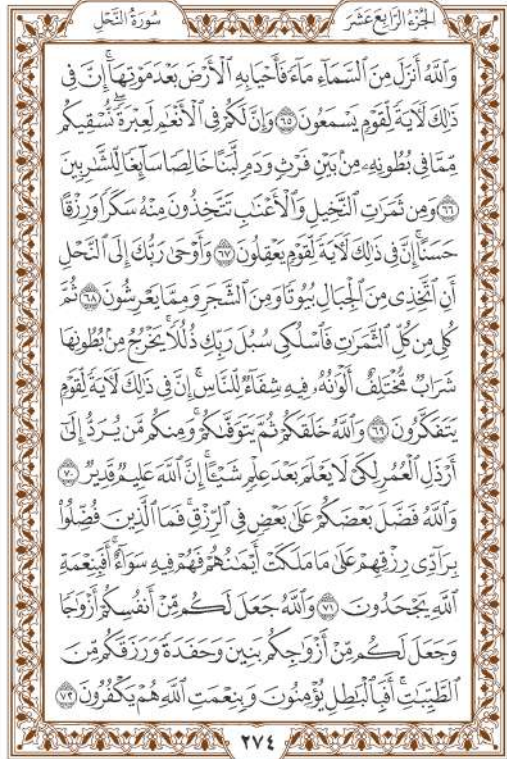 الجُزْءُ الرَّابِعَ عَشَرَ
سُورَةُ النَّحْلِ
وَٱللَّهُ أَنزَلَ مِنَ ٱلسَّمَآءِ مَآءً فَأَحْيَا بِهِ ٱلْأَرْضَ بَعْدَ مَوْتِهَآۚ إِنَّ فِي
ذَٰلِكَ لَأٓيَةً لِّقَوْمٍ يَسْمَعُونَ ٦٥ وَإِنَّ لَكُمْ فِي ٱلْأَنْعَٰمِ لَعِبْرَةًۖ نُّسْقِيكُم
مِّمَّا فِي بُطُونِهِۦ مِنۢ بَيْنِ فَرْثٍ وَدَمٍ لَّبَنًا خَالِصًا سَآئِغًا لِّلشَّٰرِبِينَ
٦٦ وَمِن ثَمَرَٰتِ ٱلنَّخِيلِ وَٱلْأَعْنَٰبِ تَتَّخِذُونَ مِنْهُ سَكَرًا وَرِزْقًا
حَسَنًاۗ إِنَّ فِي ذَٰلِكَ لَأٓيَةً لِّقَوْمٍ يَعْقِلُونَ ٦٧ وَأَوْحَىٰ رَبُّكَ إِلَى ٱلنَّحْلِ
أَنِ ٱتَّخِذِي مِنَ ٱلْجِبَالِ بُيُوتًا وَمِنَ ٱلشَّجَرِ وَمِمَّا يَعْرِشُونَ ٦٨ ثُمَّ
كُلِي مِن كُلِّ ٱلثَّمَرَٰتِ فَٱسْلُكِي سُبُلَ رَبِّكِ ذُلُلًاۚ يَخْرُجُ مِنۢ بُطُونِهَا
شَرَابٌ مُّخْتَلِفٌ أَلْوَٰنُهُۥ فِيهِ شِفَآءٌ لِّلنَّاسِۚ إِنَّ فِي ذَٰلِكَ لَأٓيَةً لِّقَوْمٍ
يَتَفَكَّرُونَ ٦٩ وَٱللَّهُ خَلَقَكُمْ ثُمَّ يَتَوَفَّىٰكُمْۚ وَمِنكُم مَّن يُرَدُّ إِلَىٰٓ
أَرْذَلِ ٱلْعُمُرِ لِكَيْ لَا يَعْلَمَ بَعْدَ عِلْمٍ شَيْـًٔاۚ إِنَّ ٱللَّهَ عَلِيمٌ قَدِيرٌ ٧٠
وَٱللَّهُ فَضَّلَ بَعْضَكُمْ عَلَىٰ بَعْضٍ فِي ٱلرِّزْقِۚ فَمَا ٱلَّذِينَ فُضِّلُوا۟
بِرَآدِّي رِزْقِهِمْ عَلَىٰ مَا مَلَكَتْ أَيْمَٰنُهُمْ فَهُمْ فِيهِ سَوَآءٌۚ أَفَبِنِعْمَةِ
ٱللَّهِ يَجْحَدُونَ ٧١ وَٱللَّهُ جَعَلَ لَكُم مِّنْ أَنفُسِكُمْ أَزْوَٰجًا
وَجَعَلَ لَكُم مِّنْ أَزْوَٰجِكُم بَنِينَ وَحَفَدَةً وَرَزَقَكُم مِّنَ
ٱلطَّيِّبَٰتِۚ أَفَبِٱلْبَٰطِلِ يُؤْمِنُونَ وَبِنِعْمَتِ ٱللَّهِ هُمْ يَكْفُرُونَ ٧٢
٢٧٤